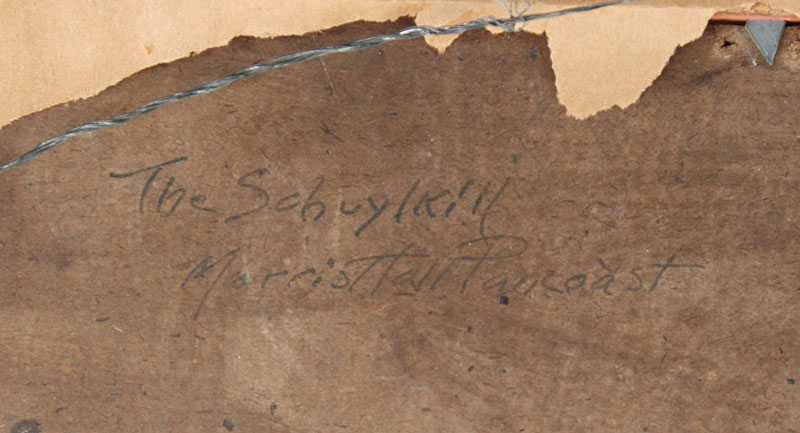 The Schuylkill
Morris Hall Pancoast